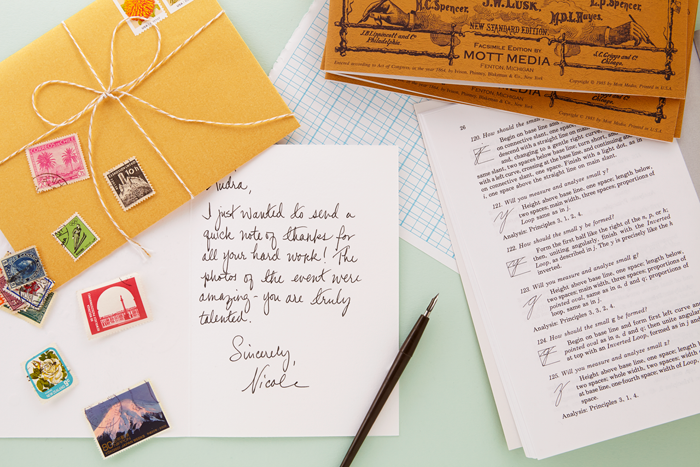 H.C. Spencer,
J.W. LUSK,
M.D.L. Hayes,
NEW STANDARD EDITION
J.B. Lippincott and Co
Philadelphia.
S.C. Griggs and Co
Chicago.
FACSIMILE EDITION BY
MOTT MEDIA
FENTON, MICHIGAN
I just wanted to send a
quick note of thanks for
all your hard work! The
photos of the event were
amazing - you are truly
talented.
Sincerely,
Nicole
10
50
26
120. How should the small
Begin on base line and
on connective slant, one space;
descend with a gentle right curve
and, changing to
same slant, two spaces below base line; turn short, and
with a left curve, crossing at the base line, and continuing
on connective slant, one space. Finish with a light dot, as in
i, one space above the straight line on main slant.
121. Will you measure and analyze small y?
Height above base line, one space; length below,
two spaces; main width, three spaces; proportions of
same as in j.
Analysis: Principles 3, 1, 2, 4.
122. How should the small y be formed?
Form the first half like the right of the n, p, or h;
then, uniting angularly, finish with the Inverted
Loop, as described in j. The y is precisely like the h
inverted.
123. Will you measure and analyze small g?
Height above base line, one space; length below,
two spaces; main width, three spaces; proportions of
pointed oval, same as in a, d and q; proportions of
loop, same as in y.
Analysis: Principles 3, 3, 2, 4.
124. How should the small g be formed?
Begin on base line and form first left curve and
pointed oval as in a, d and q; then unite angularly
at top with an Inverted Loop, formed as in j and
125. Will you measure and analyze small z?
Height above base line, one space; length below,
two spaces; whole width, two spaces; width of
at base line, one-fourth space; width of Loop,
space.
Analysis: Principles 3, 1, 4.